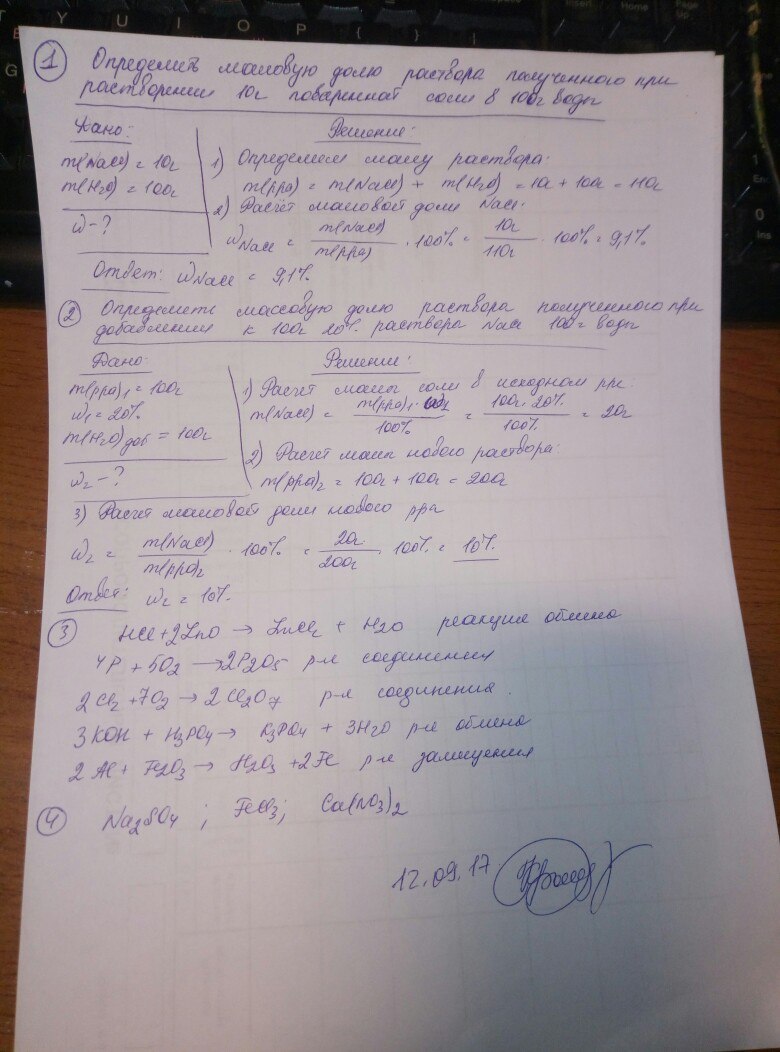 1 Определить массовую долю раствора полученного при
растворении 10г поваренной соли в 100г воды
Дано:
m(NaCl) = 10г
m(H2O) = 100г
W-?
Решение:
1) Определяем массу раствора:
m(рра) = m(NaCl) + m(H2O) = 10г + 100г = 110г
2) Расчёт массовой доли NaCl:
WNaCl = m(NaCl) / m(рра) · 100% = 10г / 110г · 100% = 9,1%
Ответ: WNaCl = 9,1%
2 Определить массовую долю раствора полученного при
добавлении к 100г 20% раствора NaCl 100г воды
Дано:
m(рра)1 = 100г
W1 = 20%
m(H2O)доб = 100г
W2 - ?
Решение:
1) Расчет массы соли в исходном рре:
m(NaCl) = m(рра)1 · W1 / 100% = 100г · 20% / 100% = 20г
2) Расчет массы нового раствора:
m(рра)2 = 100г + 100г = 200г
3) Расчет массовой доли нового рра
W2 = m(NaCl) / m(рра)2 · 100% = 20г / 200г · 100% = 10%
Ответ: W2 = 10%
3 HCl + 2ZnO → ZnCl2 + H2O реакция обмена
4P + 5O2 → 2P2O5 р-я соединения
2Cl2 + 7O2 → 2Cl2O7 р-я соединения.
3KOH + H3PO4 → K3PO4 + 3H2O р-я обмена
2Al + Fe2O3 → Al2O3 + 2Fe р-я замещения
4 Na2SO4 ; FeCl3; Ca(NO3)2
12.09.17